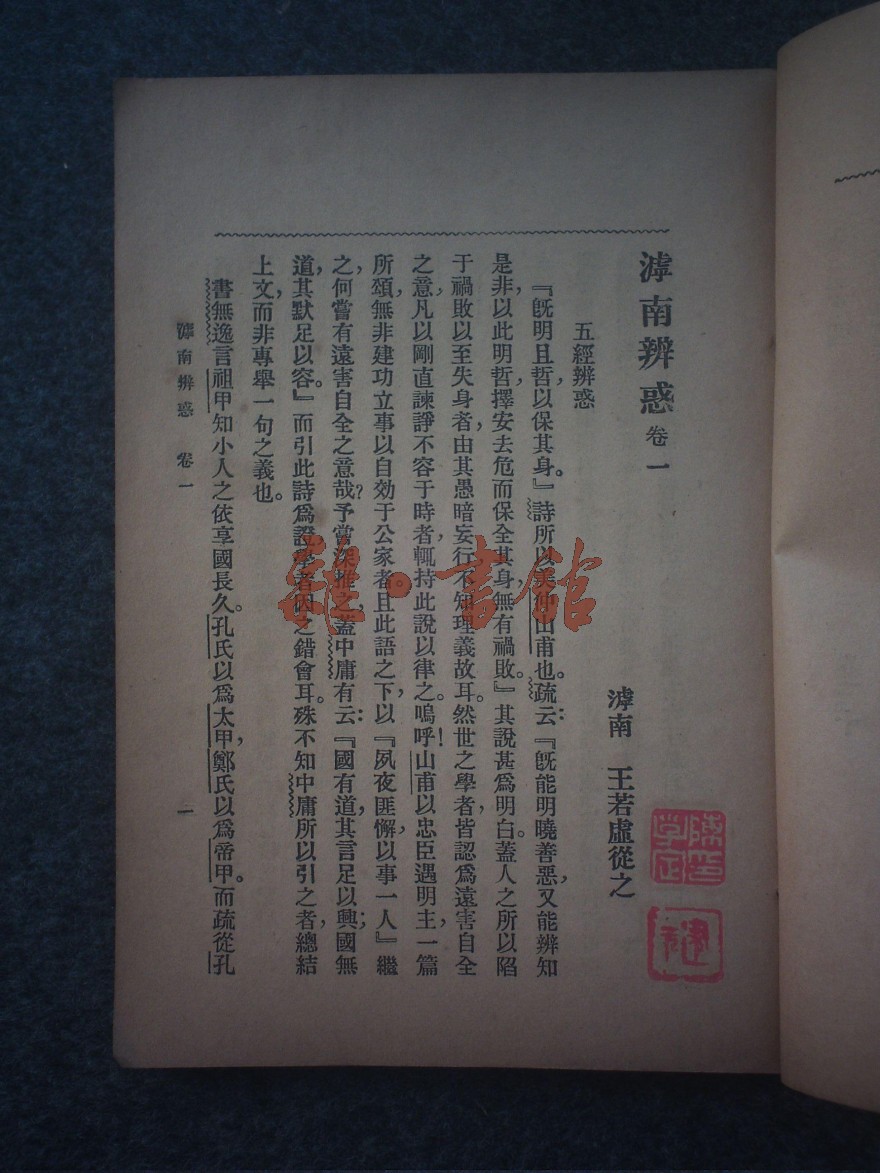 滹南辨惑 卷一
滹南 王若虛從之
五經辨惑
『旣明且哲，以保其身。』詩所以美仲山甫也。疏云：『旣能明曉善惡，又能辨知
是非，以此明哲，擇安去危而保全其身，無有禍敗。』其說甚爲明白。蓋人之所以陷
于禍敗以至失身者，由其愚暗妄行，不知理義故耳。然世之學者，皆認爲遠害自全
之意，凡以剛直諫諍不容于時者，輒持此說以律之。嗚呼！山甫以忠臣遇明主，一篇
所頌，無非建功立事以自効于公家者。且此語之下，以『夙夜匪懈，以事一人』繼
之，何嘗有遠害自全之意哉？予嘗深推之，蓋中庸有云：『國有道，其言足以興；國無
道，其默足以容。』而引此詩爲證，學者因之錯會耳。殊不知中庸所以引之者，總結
上文，而非專舉一句之義也。
書無逸言祖甲知小人之依，享國長久。孔氏以爲太甲，鄭氏以爲帝甲。而疏從孔
滹南辨惑 卷一 一
雜·書館